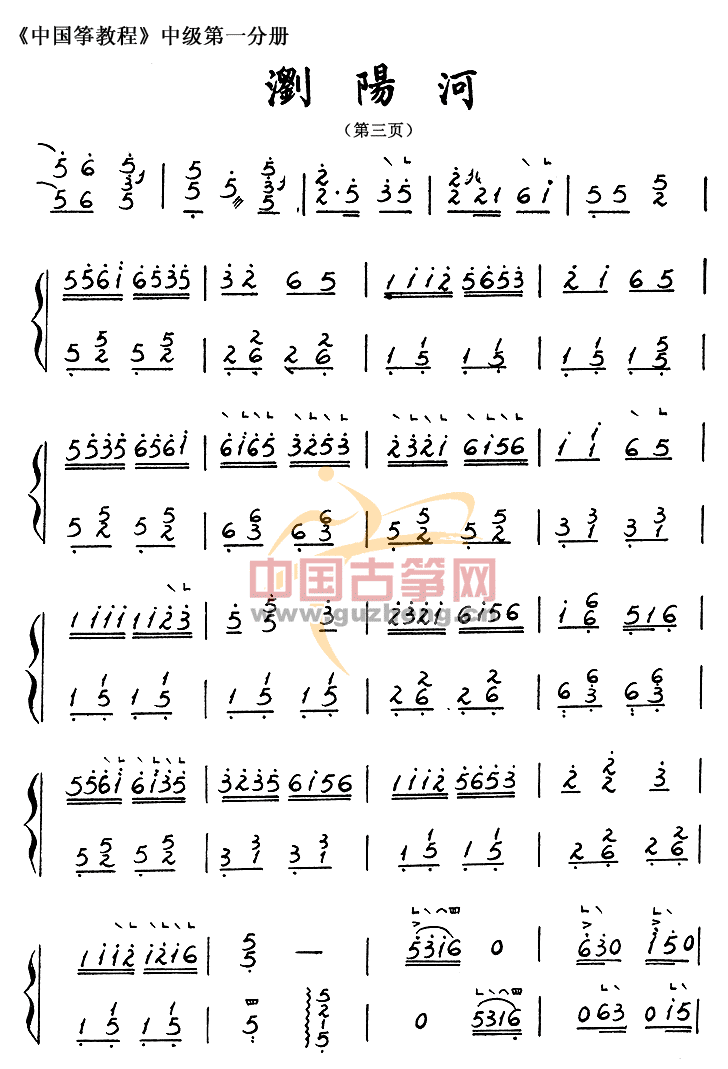 《中国筝教程》中级第一分册
瀏陽河
（第三页）
5 6 5 | 5 5 5 | 2 | 2 | 5
5 6 3 5 | 5 3 5 | 2 · 5 3 5 | 2 2 1 6 i | 5 5 2 |
5561 6535 | 3 2 6 5 | 1112 5653 | 2 1 6 5 |
5 5 2 5 5 2 | 2 2 6 2 2 6 | 1 1 5 1 1 5 | 1 1 5 1 5 5
5535 6561 | 6165 3253 | 2321 6156 | 1 1 1 6 5
5 5 2 5 5 2 | 6 6 3 6 6 3 | 5 5 2 5 5 2 | 3 3 1 3 3 1
中国古筝网
www.guzheng.cn
1111 1123 | 5 5 5 3 | 2321 6156 | 1 6 6 516 |
1 1 5 1 1 5 | 1 1 5 1 1 5 | 2 2 6 2 2 6 | 6 6 3 6 6 3
5561 6135 | 3235 6156 | 1112 5653 | 2 2 2 3
5 5 2 5 5 2 | 3 3 1 3 3 1 | 1 1 5 1 1 5 | 2 2 6 2 2 6
1112 1216 | 5 5 — | 5316 0 | 630 150
1 1 5 1 1 5 | 5 四 5 2 1 5 | 0 5316 | 063 015 |